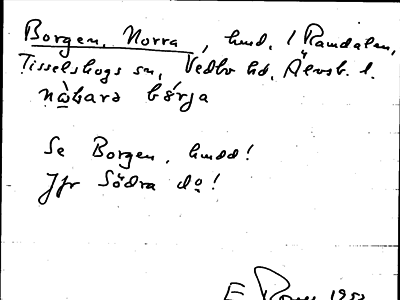 Borgen, Norra, hmd. i Randalen,
Tisselskogs sn, Vedbo hd, Älvsb. l.
nò̤ara bǿrja
Se Borgen, hmdd!
Jfr Södra do!
E 1952